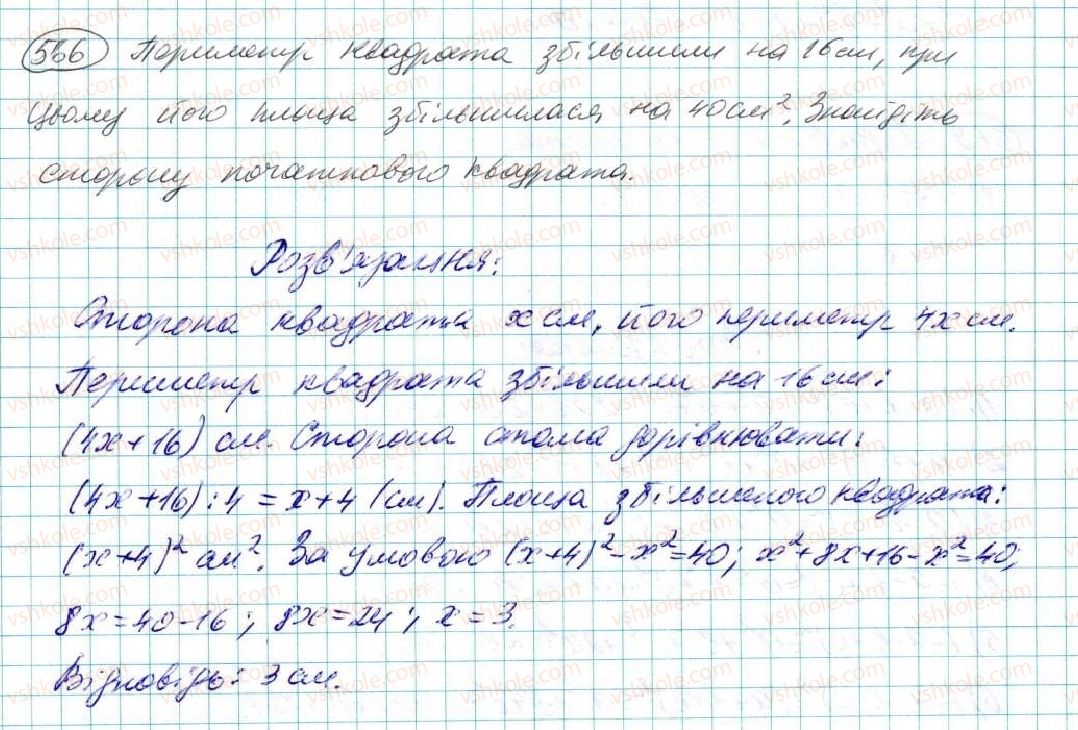 566 Периметр квадрата збільшили на 16 см, при
цьому його площа збільшилася на 40 см². Знайдіть
сторону початкового квадрата.
Розв'язання:
Сторона квадрата x см, його периметр 4x см.
Периметр квадрата збільшили на 16 см:
(4x+16) см. Сторона стала дорівнювати:
(4x+16):4=x+4 (см). Площа збільшеного квадрата:
(x+4)² см². За умовою (x+4)²-x²=40; x²+8x+16-x²=40;
8x=40-16; 8x=24; x=3.
Відповідь: 3 см.